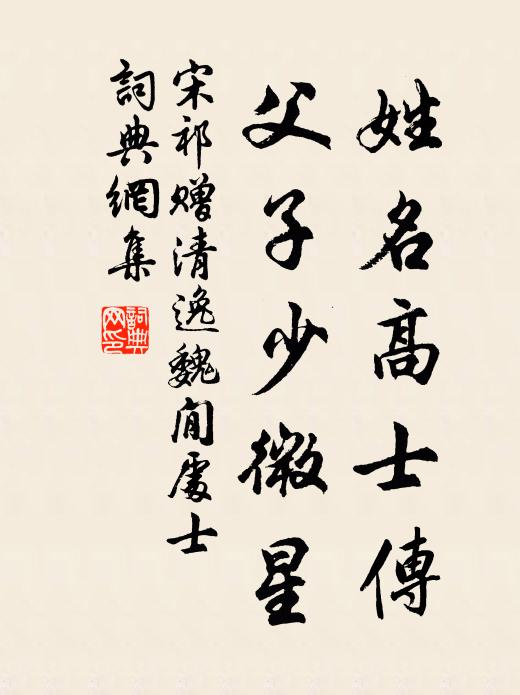 姓名高士傳
父子少微星
宋祁贈清逸魏閒處士
詞典網集
詞典网印